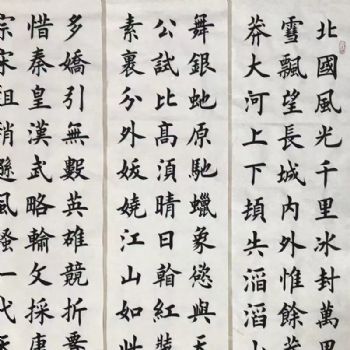 北國風光千里冰封萬
雪飄望長城内外惟餘莽
莽大河上下頓失滔滔山
舞銀虵原馳蠟象慾與天
公試比髙湏晴日翰紅裝
素裹分外妖嬈江山如此
多嬌引無數英雄競折腰
惜秦皇漢武略輸文採唐
宗宋祖稍遜風騷一代